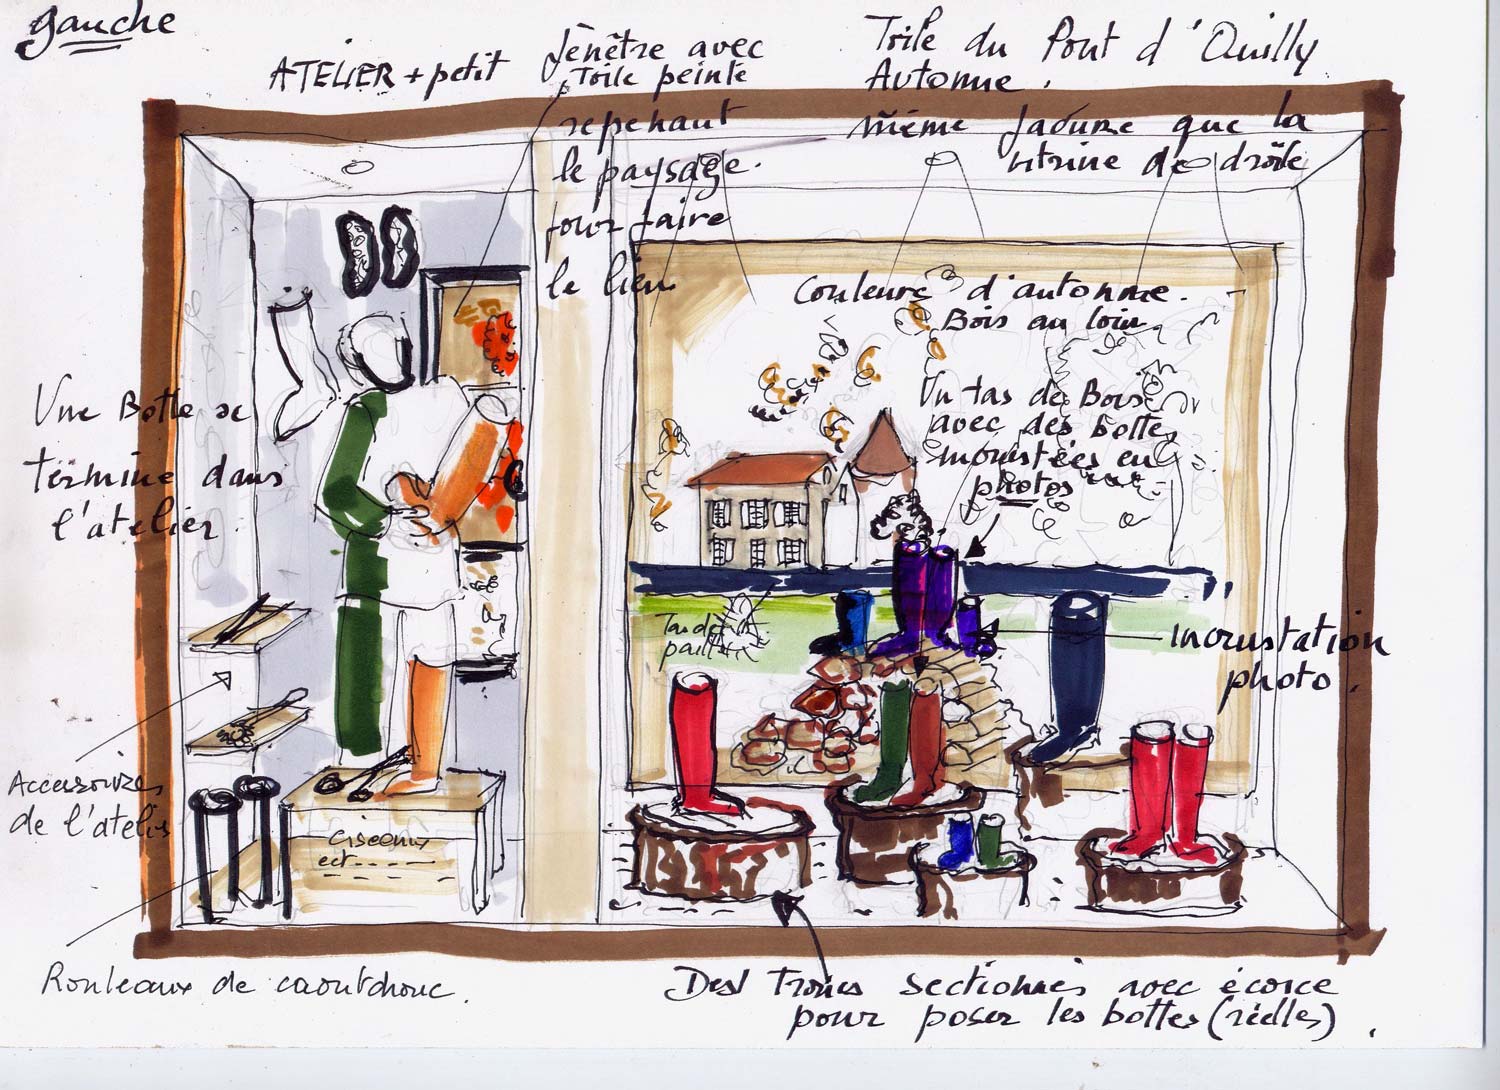 gauche
ATELIER + petit
fênêtre avec
Toile peinte
repenant
le paysage.
pour faire
le lien
Toile du Pont d'Ouilly
Automne.
même facure que la
vitrine de droite
Couleurs d'automne.
Bois au loin
Un tas de Bois
avec des bottes
incrustées en
photos
Une Botte se
termine dans
l'atelier
incrustation
photo.
Accessoires
de l'atelier
Ciseaux
ect.....
Rouleaux de caoutchouc.
Des Troncs sectionnés avec écorce
pour poser les bottes (réelles).